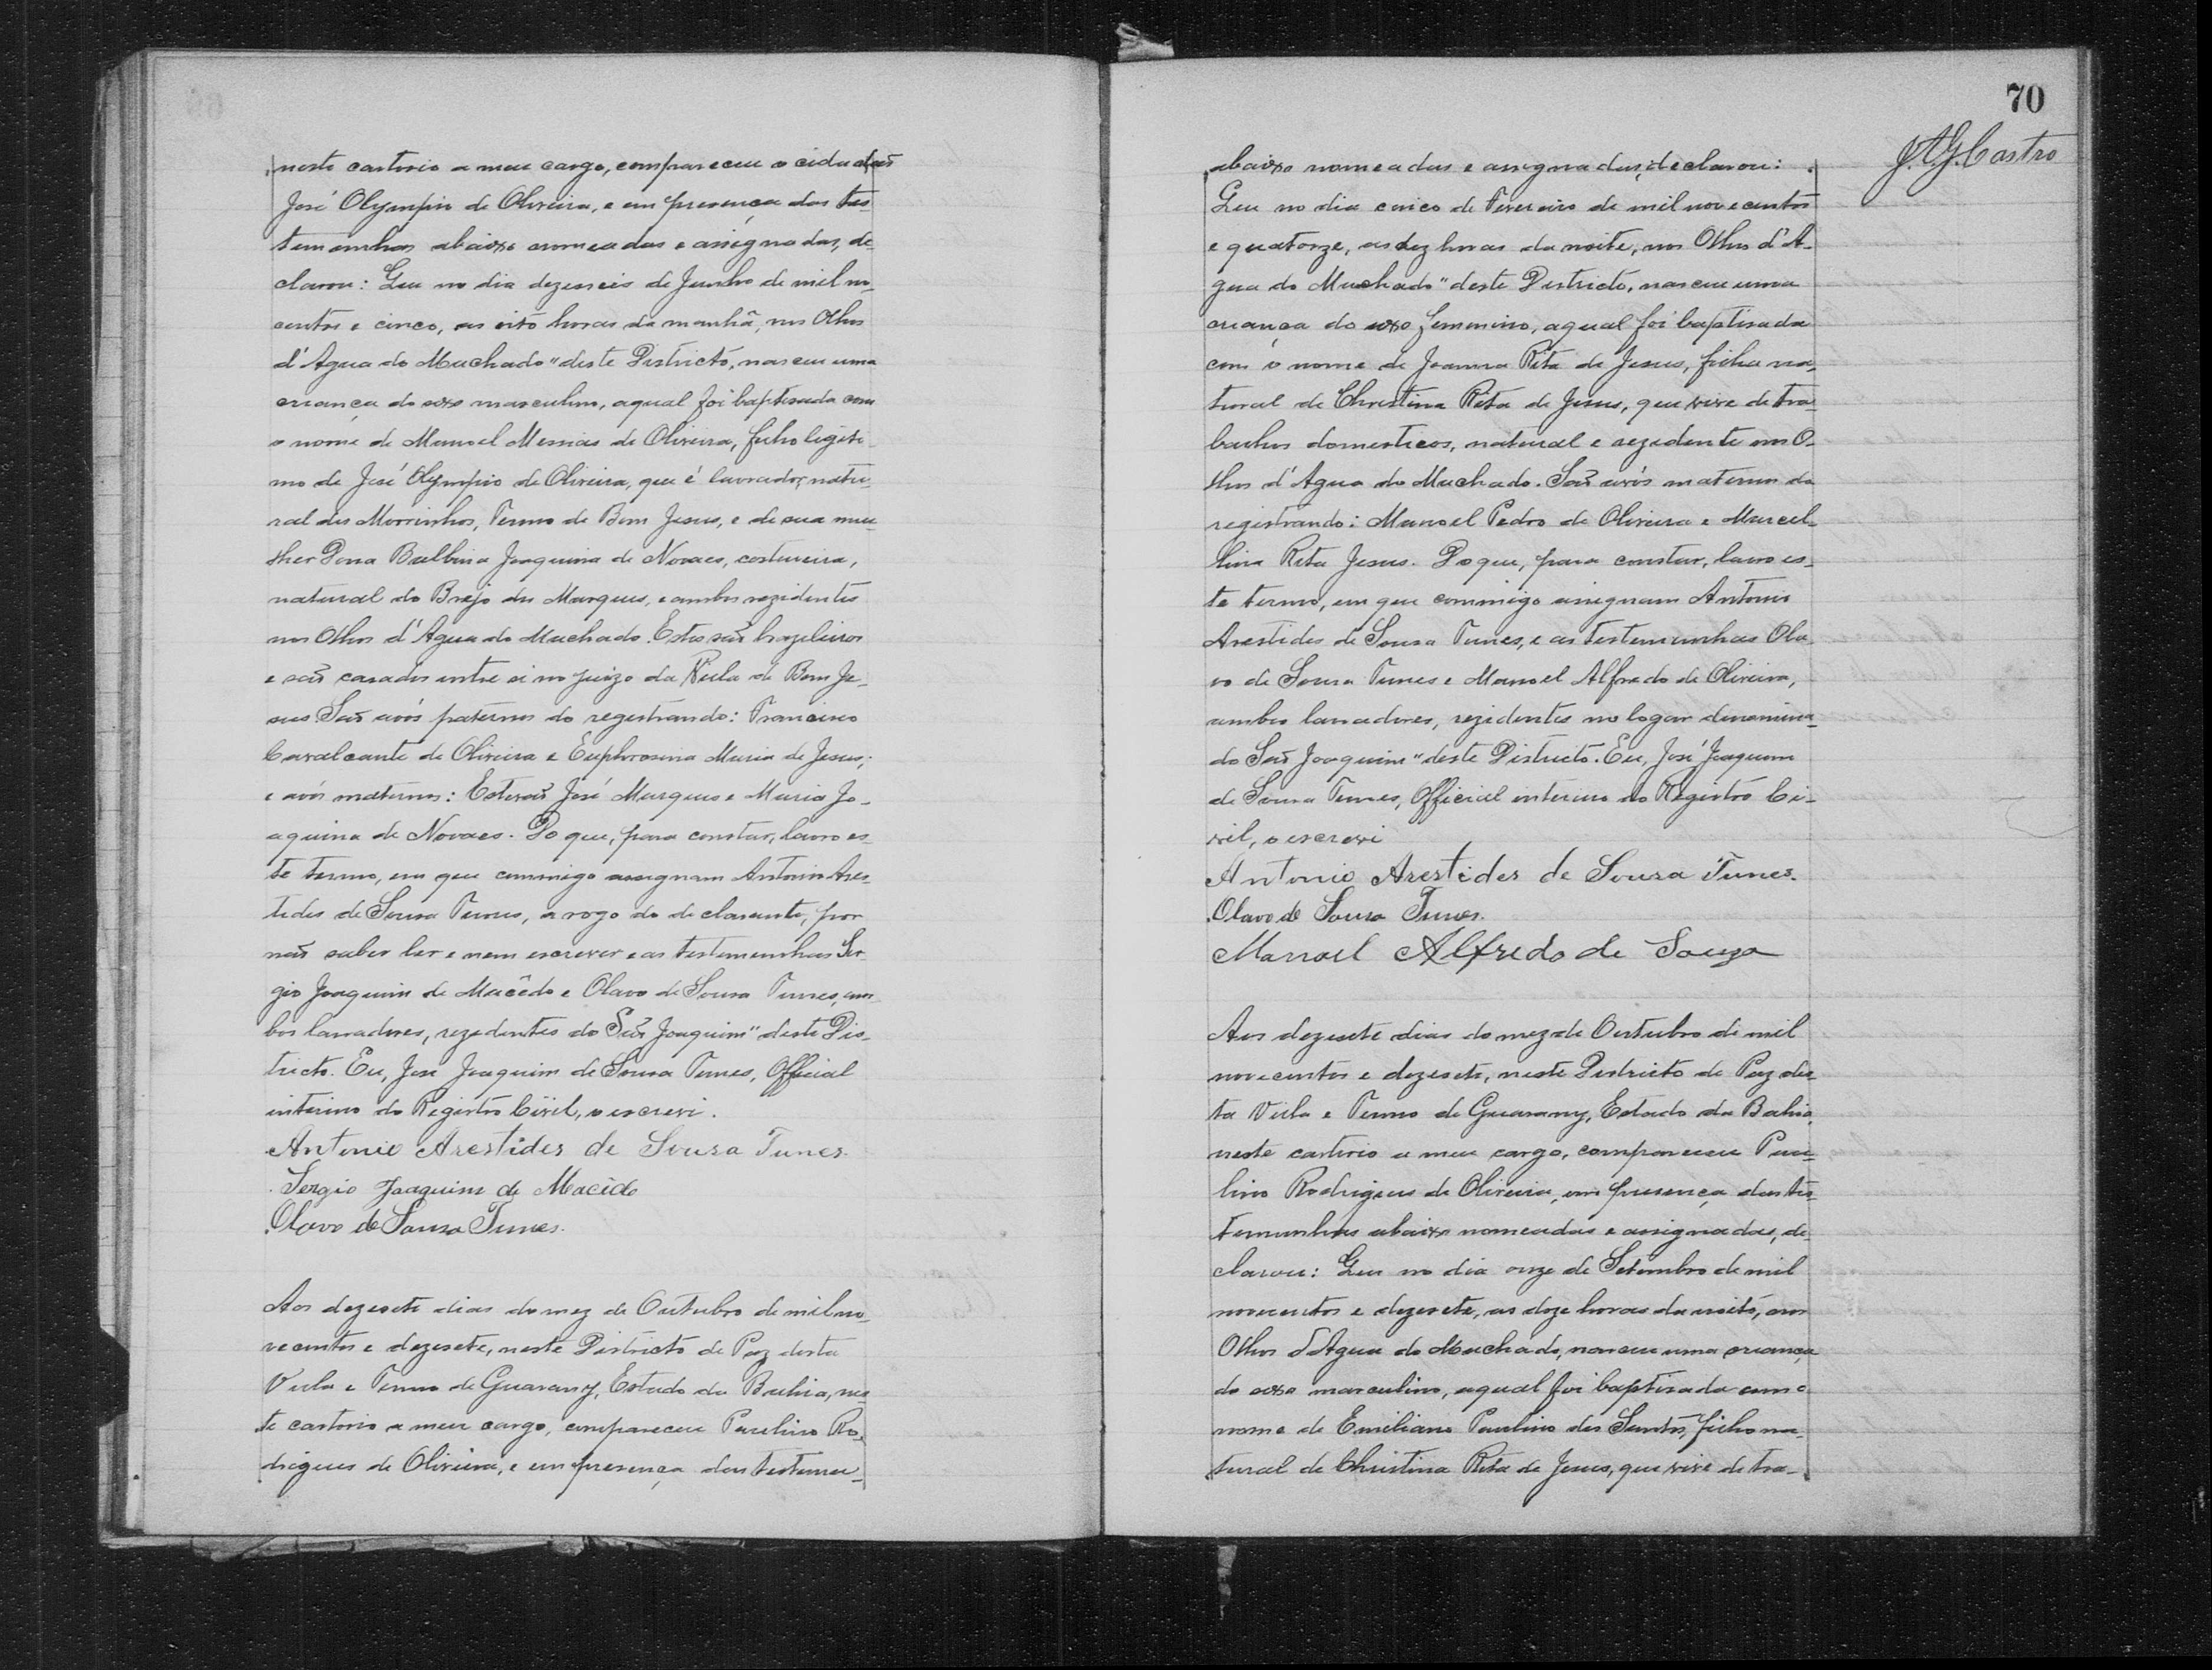 neste cartorio a meu cargo, compareceu o cidadão
José Olympio de Oliveira, e em presença das tes-
temunhas abaixo nomeadas e assignadas, de-
clarou: Que no dia dezeseis de Junho de mil no-
centos e cinco, as oito horas da manhã, nos Olhos
d'Agua do Machado" deste Districto, nasceu uma
criança do sexo masculino, aqual foi baptisada com
o nome de Manoel Messias de Oliveira, filho legiti-
mo de José Olympio de Oliveira, que é lavrador, natu-
ral dos Morrinhos, Termo de Bom Jesus, e de sua mu-
lher Dona Balbina Joaquina de Novaes, costureira,
natural do Brejo dos Marques, e ambos rezidentes
nos Olhos d'Agua do Machado. Estes são brazileiros
e são casados entre si no juizo da Villa de Bom Je-
sus. São avós paternos do registrando: Francisco
Cavalcante de Oliveira e Euphrosina Maria de Jesus;
e avós maternos: Estevão José Marques e Maria Jo-
aquina de Novaes. Do que, para constar, lavro es-
te termo, em que commigo assignam Antonio Ares-
tides de Sousa Tunes, a rogo do declarante, por
não saber ler e nem escrever e as testemunhas Ser-
gio Joaquim de Macêdo e Olavo de Sousa Tunes, am-
bos lavradores, rezedentes do São Joaquim" deste Dis-
tricto. Eu, José Joaquim de Sousa Tunes, Official
interino do Registro Civil, o escrevi.
Antonio Arestides de Sousa Tunes.
Sergio Joaquim de Macêdo
Olavo de Sousa Tunes.
Aos dezesete dias do mez de Outubro de mil no-
vecentos e dezesete, neste Districto de Paz desta
Villa e Termo de Guarany, Estado da Bahia, nes-
te cartorio a meu cargo, compareceu Paulino Ro-
drigues de Oliveira, e em presença das testemu-
70
J.A.G. Castro
abaixo nomeadas e assignadas, declarou:
Que no dia cinco de Fevereiro de mil novecentos
e quatorze, as dez horas da noite, nos Olhos d'A-
gua do Machado" deste Districto, nasceu uma
criança do sexo femenino, aqual foi baptisada
com o nome de Joanna Rita de Jesus, filha na-
tural de Christina Rita de Jesus, que vive de tra-
balhos domesticos, natural e rezedente nos O-
lhos d'Agua do Machado. São avós maternos da
registrando: Manoel Pedro de Oliveira e Marcel-
lina Rita Jesus. Do que, para constar, lavro es-
te termo, em que commigo assignam Antonio
Arestides de Sousa Tunes, e as testemunhas Ola-
vo de Sousa Tunes e Manoel Alfredo de Oliveira,
ambos lavradores, rezidentes no logar denomina-
do São Joaquim" deste Districto. Eu, José Joaquim
de Sousa Tunes, Official interino do Registro Ci-
vil, o escrevi
Antonio Arestides de Sousa Tunes.
Olavo de Sousa Tunes.
Manoel Alfredo de Souza
Aos dezesete dias do mez de Outubro de mil
novecentos e dezesete, neste Districto de Paz des-
ta Villa e Termo de Guarany, Estado da Bahia,
neste cartorio a meu cargo, compareceu Pau-
lino Rodrigues de Oliveira, em presença das tes-
temunhas abaixo nomeadas e assignadas, de-
clarou: Que no dia onze de Setembro de mil
novecentos e dezesete, as doze horas da noite, nos
Olhos d'Agua do Machado, nasceu uma criança
do sexo masculino, aqual foi baptisada com o
nome de Emiliano Paulino dos Santos, filho na-
tural de Christina Rita de Jesus, que vive de tra-